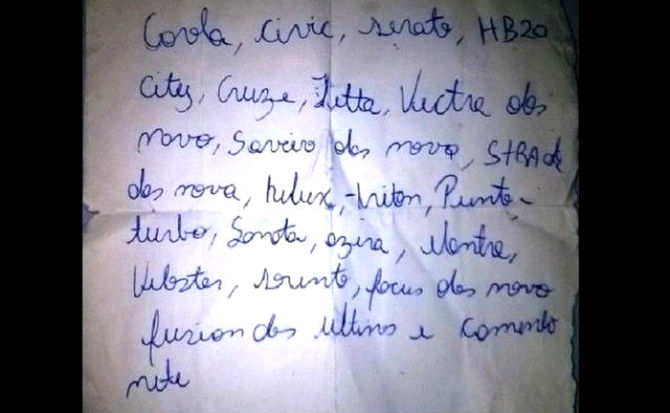 Corola, civic, serato, HB20
City, Cruze, Jetta, Vectra dos
novo, Saveiro dos novo, STRAda
dos nova, hilux, triton, Punto
turbo, Sonota, azira, elantra,
Veloster, sorento, focus dos novo
fuzion dos ultimos e